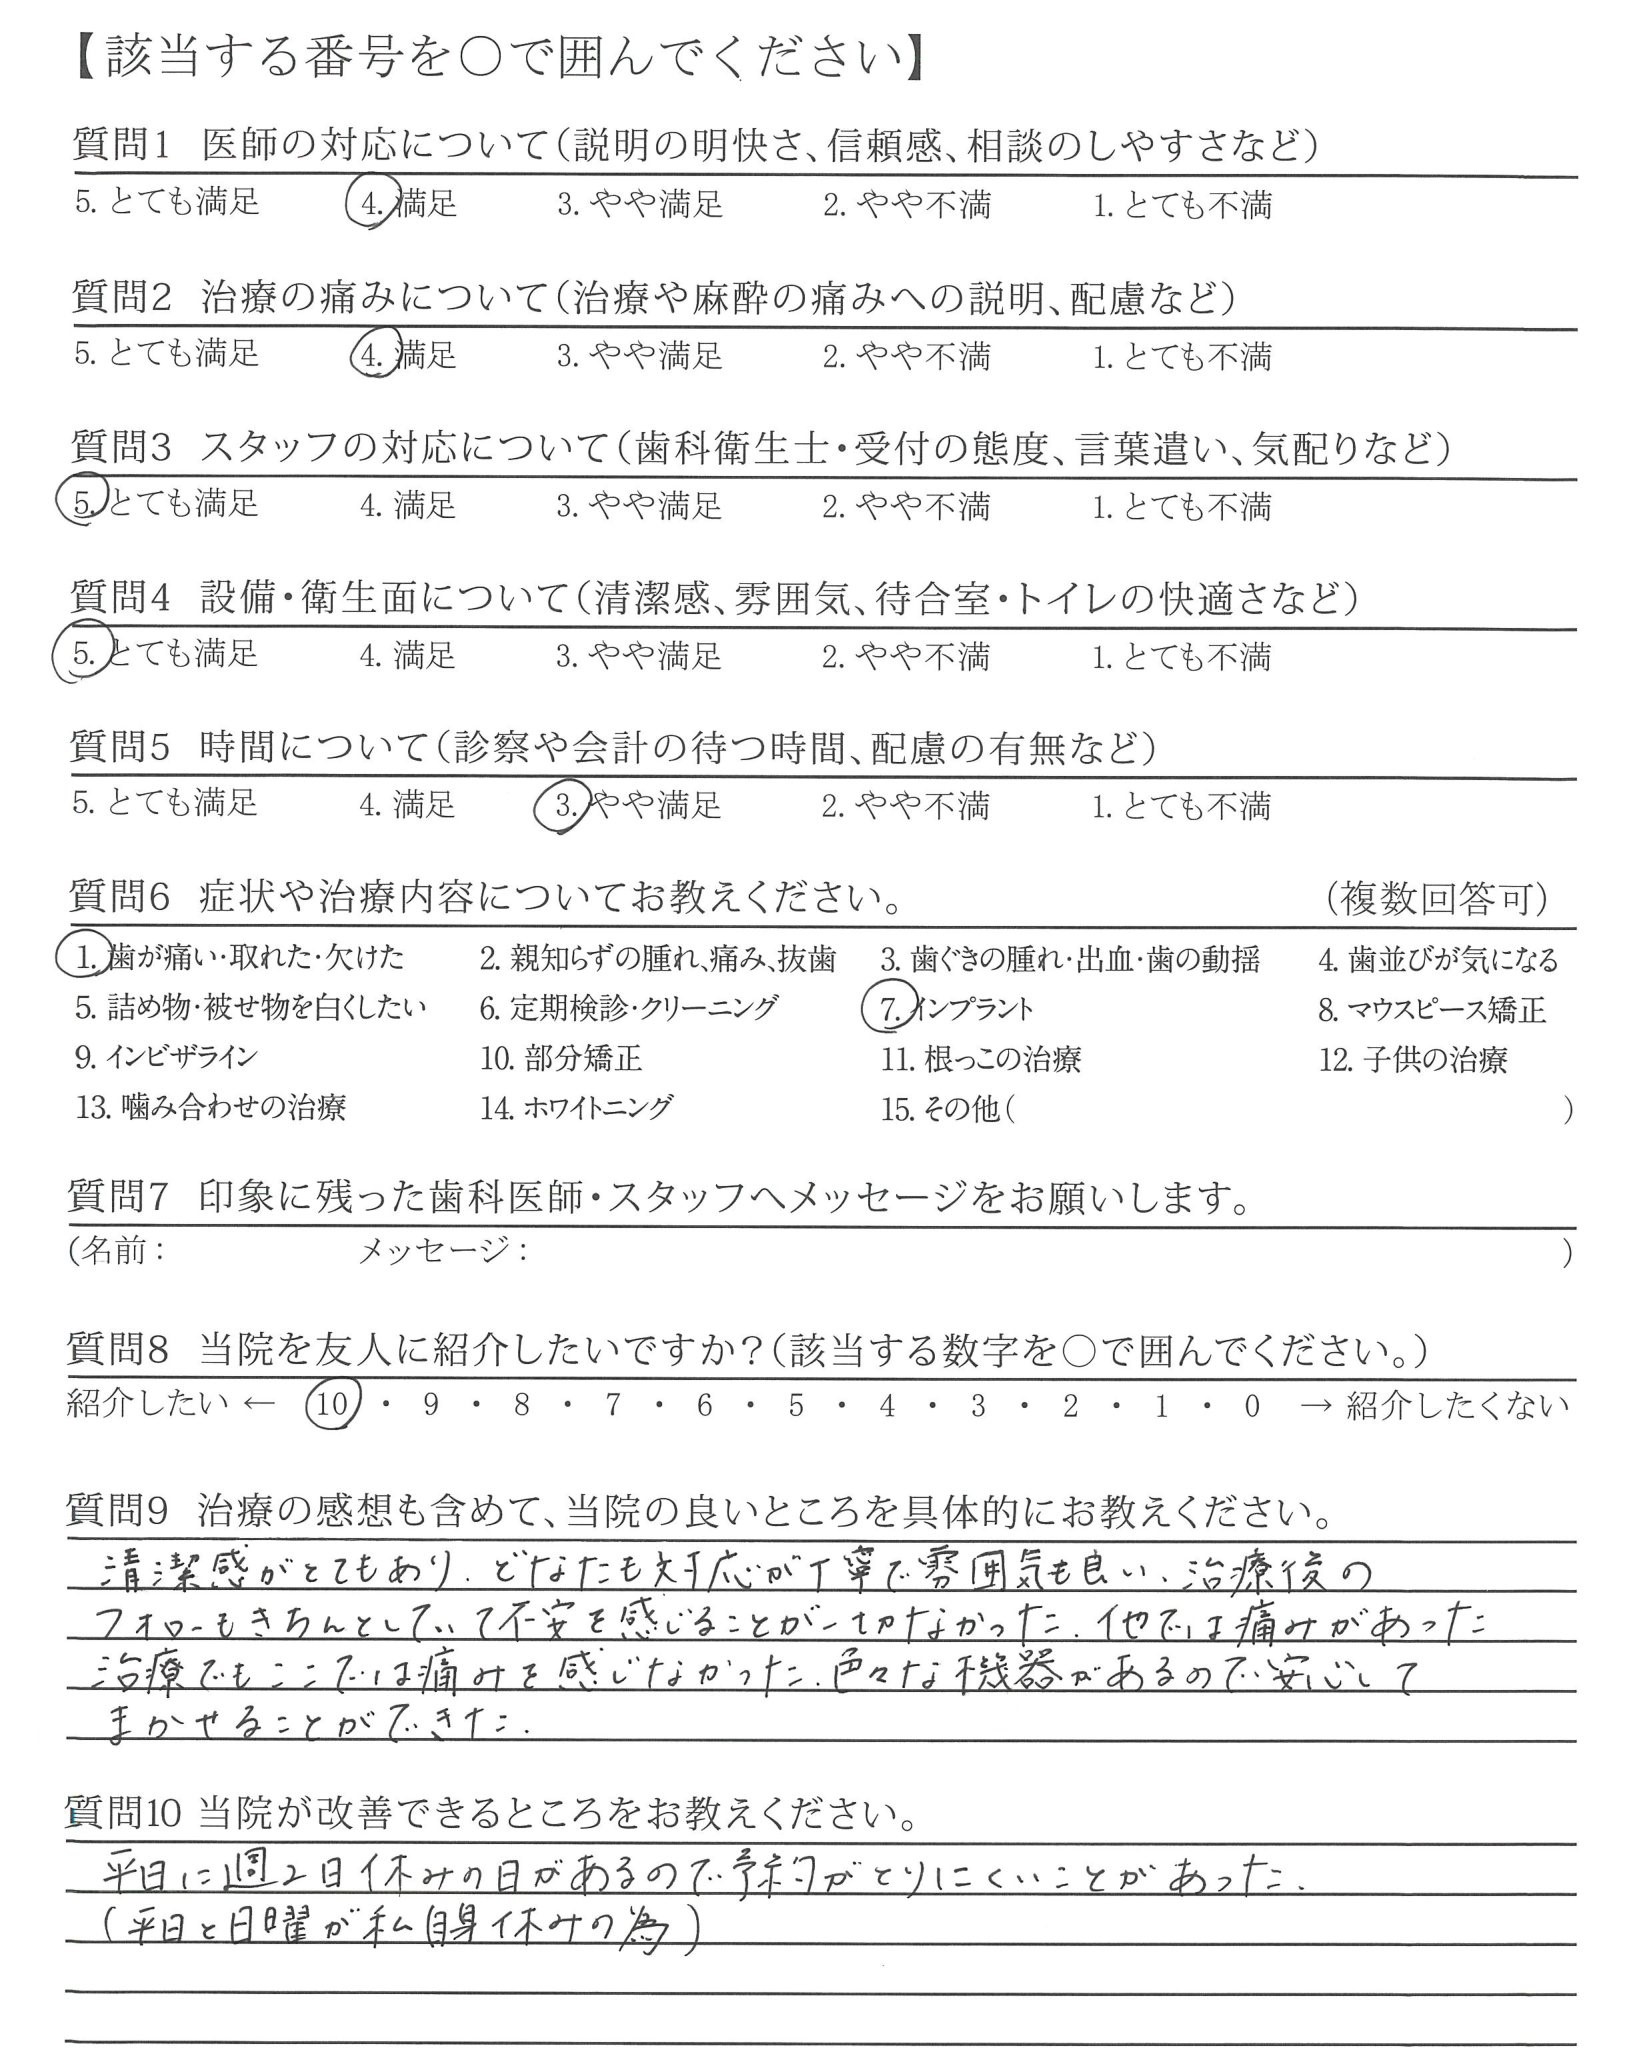 【該当する番号を○で囲んでください】
質問1 医師の対応について(説明の明快さ、信頼感、相談のしやすさなど)
5. とても満足 4. 満足 3. やや満足 2. やや不満 1. とても不満
質問2 治療の痛みについて(治療や麻酔の痛みへの説明、配慮など)
5. とても満足 4. 満足 3. やや満足 2. やや不満 1. とても不満
質問3 スタッフの対応について(歯科衛生士・受付の態度、言葉遣い、気配りなど)
5. とても満足 4. 満足 3. やや満足 2. やや不満 1. とても不満
質問4 設備・衛生面について(清潔感、雰囲気、待合室・トイレの快適さなど)
5. とても満足 4. 満足 3. やや満足 2. やや不満 1. とても不満
質問5 時間について(診察や会計の待つ時間、配慮の有無など)
5. とても満足 4. 満足 3. やや満足 2. やや不満 1. とても不満
質問6 症状や治療内容についてお教えください。 (複数回答可)
1. 歯が痛い・取れた・欠けた 2. 親知らずの腫れ、痛み、抜歯 3. 歯ぐきの腫れ・出血・歯の動揺 4. 歯並びが気になる
5. 詰め物・被せ物を白くしたい 6. 定期検診・クリーニング 7. インプラント 8. マウスピース矯正
9. インビザライン 10. 部分矯正 11. 根っこの治療 12. 子供の治療
13. 噛み合わせの治療 14. ホワイトニング 15. その他( )
質問7 印象に残った歯科医師・スタッフへメッセージをお願いします。
(名前: メッセージ: )
質問8 当院を友人に紹介したいですか?(該当する数字を○で囲んでください。)
紹介したい ← 10 ・ 9 ・ 8 ・ 7 ・ 6 ・ 5 ・ 4 ・ 3 ・ 2 ・ 1 ・ 0 → 紹介したくない
質問9 治療の感想も含めて、当院の良いところを具体的にお教えください。
清潔感がとてもあり、どなたも対応が丁寧で雰囲気も良い、治療後の
フォローもきちんとしていて不安を感じることが一切なかった。他では痛みがあった
治療でもここでは痛みを感じなかった。色々な機器があるので安心して
まかせることができた。
質問10 当院が改善できるところをお教えください。
平日に週2日休みの日があるので予約がとりにくいことがあった。
(平日と日曜が私自身休みの為)